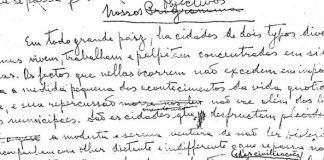 objectivos
Nossos Programma
Em todo grande paiz, ha cidades de dois typos dive
mes vivem trabalham e palpitam concentradas em si
as. Os factos que nellas occorrem não excedem em impo
a medida pequena dos acontecimentos da vida quotid
, e sua repercussão não vae além dos
municipaes. São as cidades que desfructem placida
a modesta e serena ventura de não ter historia
um olhar distante e indifferente o que se passa no